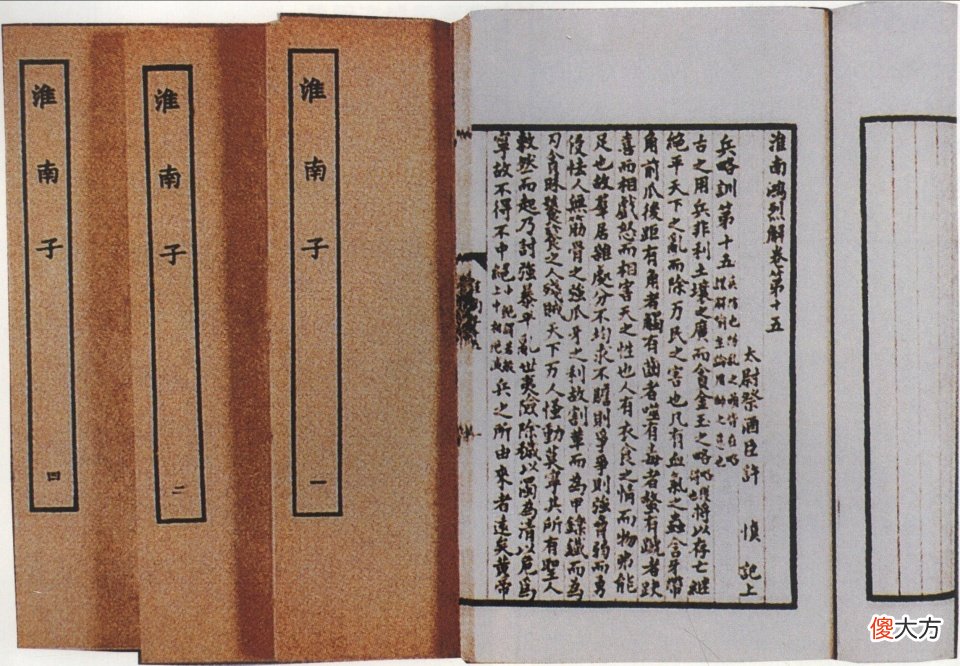 淮南鴻烈解卷第十五
太尉祭酒臣許 慎 記上
兵略訓第十五 兵防也防亂之萌皆在略
古之用兵非利土壤之廣而貪金玉之略 將以存亡繼
絕平天下之亂而除万民之害也凡有血氣之蟲含牙帶
角前爪後距有角者觸有齒者噬有毒者螫有蹄者趹
喜而相戲怒而相害天之性也人有衣食之情而物弗能
足也故羣居雜處分不均求不贍則爭爭則強脅弱而勇
侵怯人無筋骨之強爪牙之利故割革而為甲鑠鐵而為
刃貪昧饕餮之人殘賊天下万人慅動莫寧其所有聖人
敕然而起乃討強暴平亂世夷險除穢以濁為清以危為
寧故不得不中絕 兵之所由來者遠矣黃帝
淮南子 一
淮南子 二
淮南子 四
傻大方